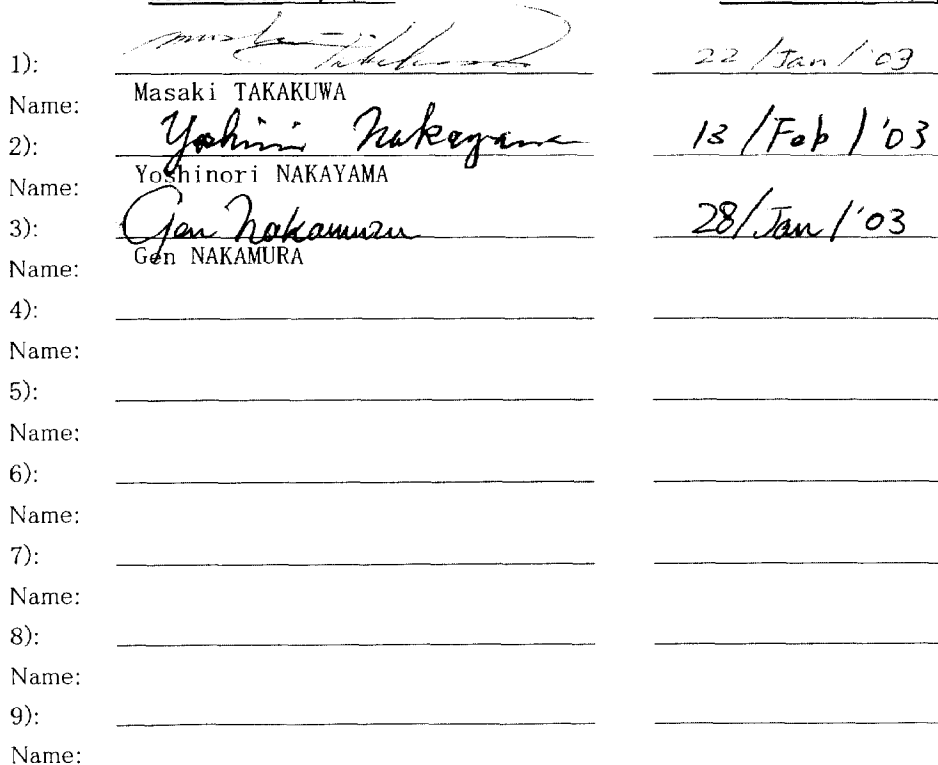 1): Masaki Takakuwa 22/Jan/'03
Name: Masaki TAKAKUWA
2): Yoshinori Nakayama 13/Feb/'03
Name: Yoshinori NAKAYAMA
3): Gen Nakamura 28/Jan/'03
Name: Gen NAKAMURA
4):
Name:
5):
Name:
6):
Name:
7):
Name:
8):
Name:
9):
Name: